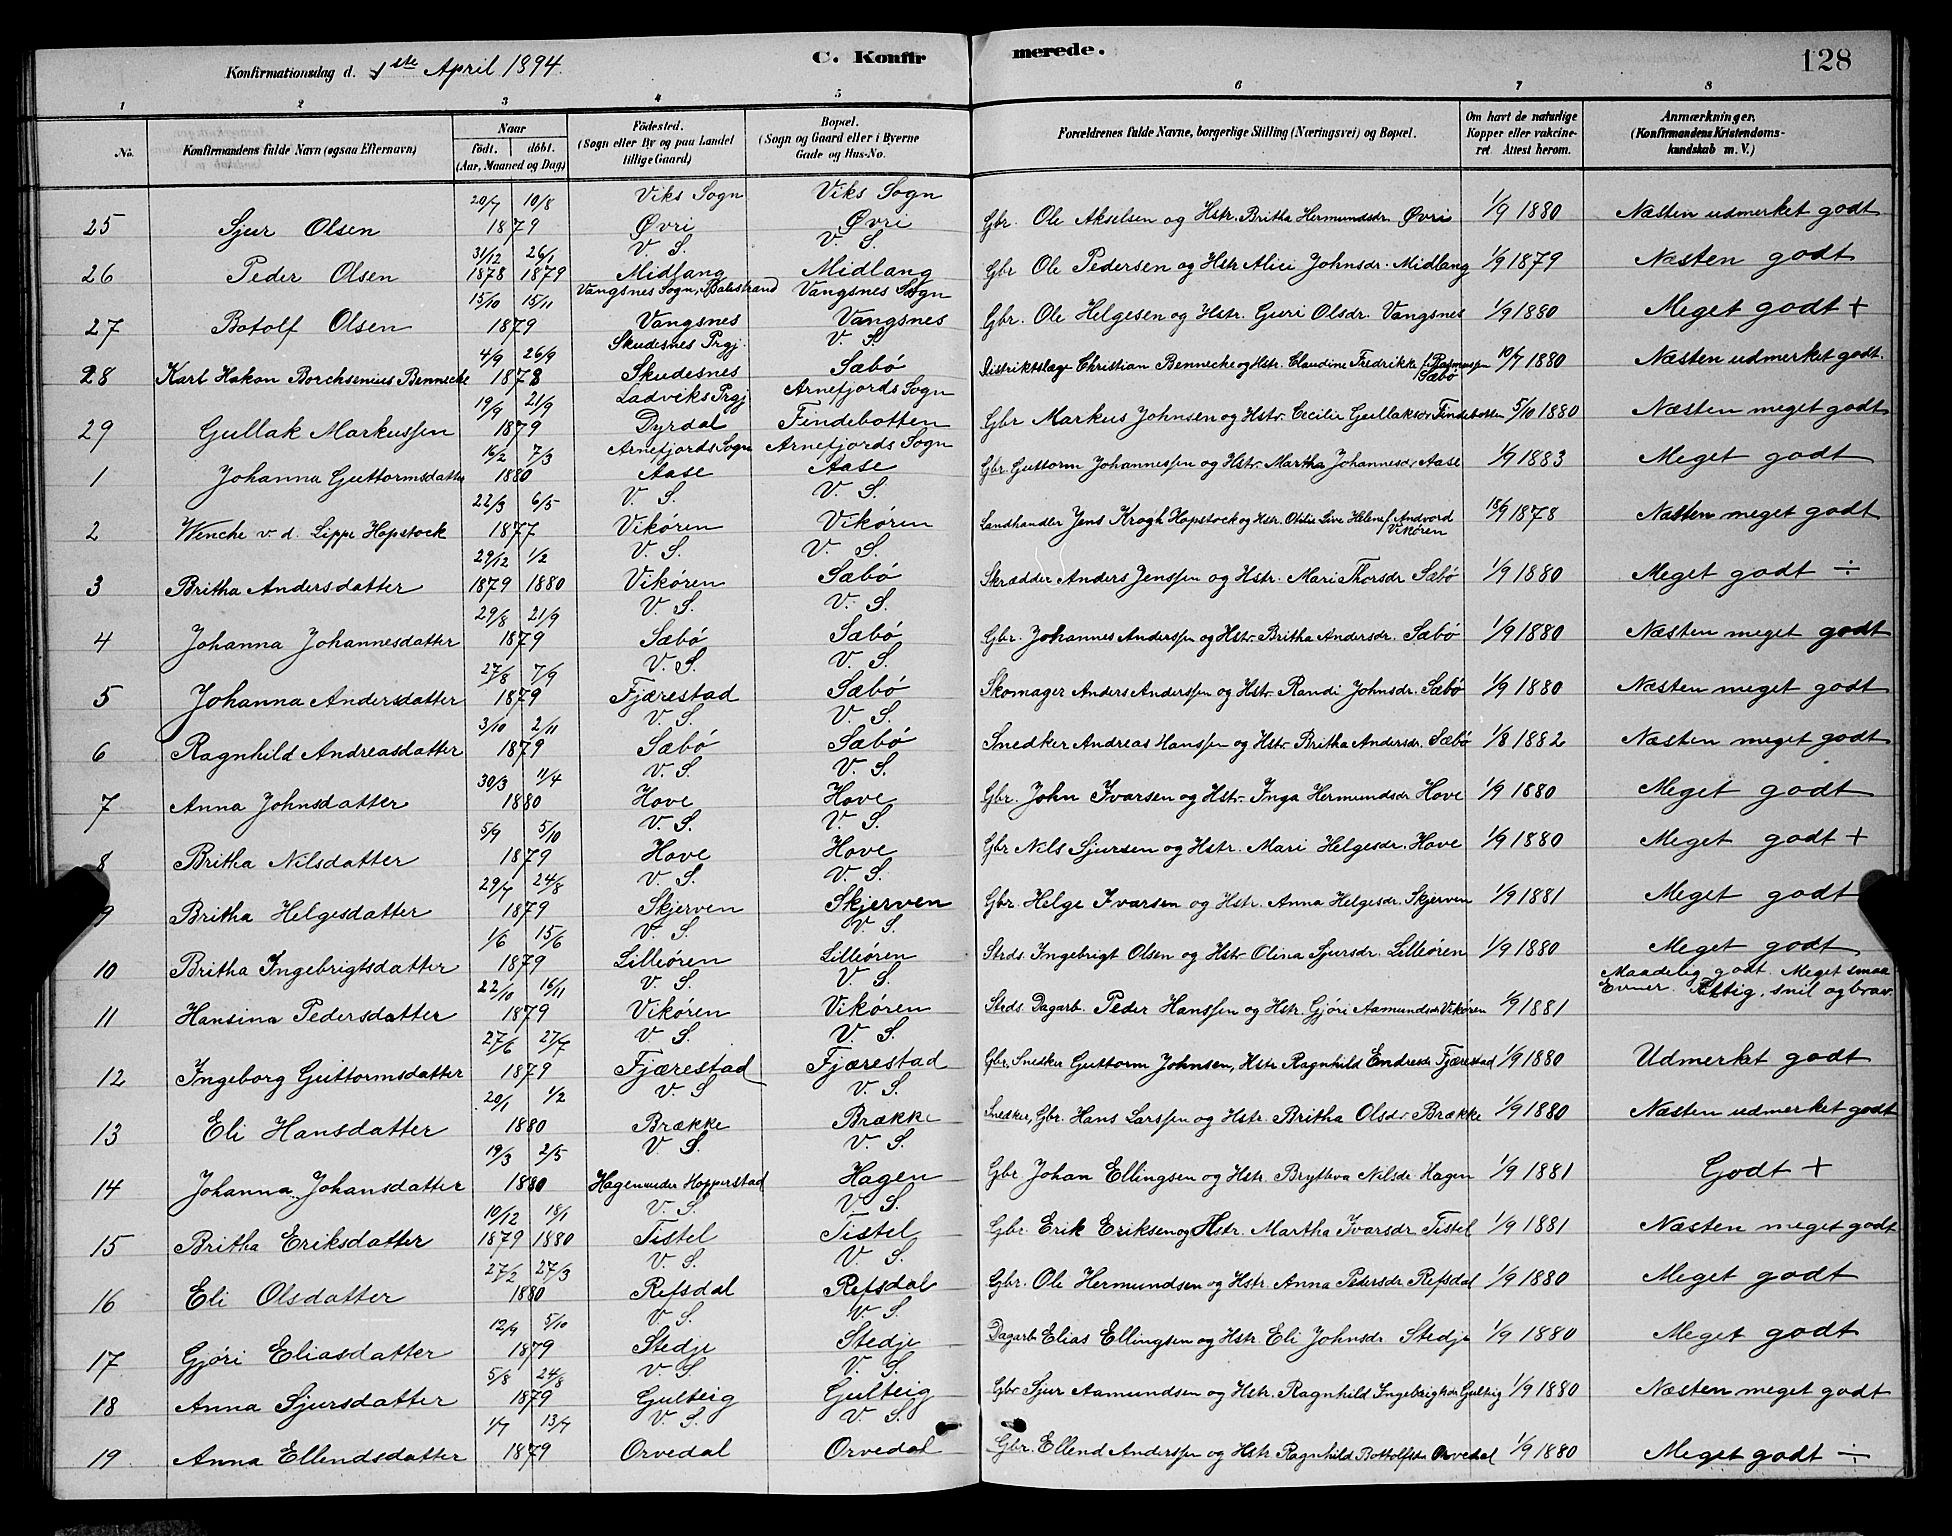 C. Konfirmerede.
128
Konfirmationsdag d. 1ste April 1894.
1 2 3 4 5 6 7 8
No. Konfirmandens fulde Navn (ogsaa Efternavn) Naar født. døbt. (Aar, Maaned og Dag) Födested. (Sogn eller By og paa Landet tillige Gaard) Bopæl. (Sogn og Gaard eller i Byerne Gade og Hus-No. Forældrenes fulde Navne, borgerlige Stilling (Næringsvei) og Bopæl. Om havt de naturlige Kopper eller vakcineret. Attest herom. Anmærkninger. (Konfirmandens Kristendomskundskab m. V.)
20/7 10/8 Viks Sogn Viks Sogn
25 Sjur Olsen 1879 Øvri Øvri Gbr. Ole Akselsen og Hstr. Britha Hermundsdr. Øvri 1/9 1880 Næsten udmerket godt
31/12 26/1 V. S. V. S.
26 Peder Olsen 1878 1879 Midlang Midlang Gbr Ole Pedersen og Hstr Alici Johnsdr. Midlang 1/9 1879 Næsten godt
15/10 15/11 Vangsnes Sogn, Balestrand Vangsnes Sogn
27 Botolf Olsen 1879 Vangsnes Vangsnes Gbr. Ole Helgesen og Hstr. Guri Olsdr. Vangsnes 1/9 1880 Meget godt +
4/9 26/9 Skudesnes Prgj. V. S.
28 Karl Hakon Borchsenius Bennecke 1878 Skudesnes Sæbö Distriktslæge Christian Bennecke og Hstr. Claudine Fredrikke f. Rasmussen Sæbö 10/7 1880 Næsten udmerket godt.
19/9 21/9 Ladviks Prgj Arnefjords Sogn
29 Gullak Markussen 1879 Dyrdal Findebotten Gbr Markus Johnsen og Hstr. Cecilie Gullaksdr Findebotten 5/10 1880 Næsten meget godt
16/2 7/3 Arnefjords Sogn Arnefjords Sogn
1 Johanna Guttormsdatter 1880 Aase Aase Gbr. Guttorm Johannessen og Hstr. Martha Johannesdr Aase 1/9 1883 Meget godt
22/3 6/5 V. S. V. S.
2 Wenche v. d. Lippe Hopstock 1877 Vikören Vikören Landhandler Jens Krogh Hopstock og Hstr. Otilie Live Helene f. Andvord Vikøren 18/9 1878 Næsten meget godt
29/12 1/2 V. S. V. S.
3 Britha Andersdatter 1879 1880 Vikören Sæbö Skrædder Anders Jenssen og Hstr. Mari Thorsdr Sæbö 1/9 1880 Meget godt ÷
29/8 21/9 V. S. V. S.
4 Johanna Johannesdatter 1879 Sæbö Sæbö Gbr. Johannes Anderssen og Hstr. Britha Andersdr. Sæbö 1/9 1880 Næsten meget godt
27/8 7/9 V. S. V. S.
5 Johanna Andersdatter 1879 Fjærestad Sæbö Skomager Anders Anderssen og Hstr. Randi Johnsdr. Sæbö 1/9 1880 Næsten meget godt
3/10 2/11 V. S. V. S.
6 Ragnhild Andreasdatter 1879 Sæbö Sæbö Snedker Andreas Hanssen og Hstr. Britha Andersdr. Sæbö 1/8 1882 Næsten meget godt
30/3 11/4 V. S. V. S.
7 Anna Johnsdatter 1880 Hove Hove Gbr. John Ivarsen og Hstr. Inga Hermundsdr Hove 1/9 1880 Meget godt
5/9 5/10 V. S. V. S.
8 Britha Nilsdatter 1879 Hove Hove Gbr Nils Sjursen og Hstr. Mari Helgesdr. Hove 1/9 1880 Meget godt +
29/7 24/8 V. S. V. S.
9 Britha Helgesdatter 1879 Skjerven Skjerven Gbr. Helge Ivarsen og Hstr. Anna Helgesdr. Skjerven 1/9 1881 Meget godt
1/6 15/6 V. S. V. S.
10 Britha Ingebrigtsdatter 1879 Lilleören Lilleören Strds. Ingebrigt Olsen og Hstr Olina Sjursdr. Lilleören 1/9 1880 Meget godt
22/10 16/11 V. S. V. S. Maadelig godt. Meget smaa
11 Hansina Pedersdatter 1879 Vikören Vikören Strds. Dagarb. Peder Hanssen og Hstr. Gjöri Aamundsdr Vikören 1/9 1881 Evner. Flittig, snil og brav.
27/6 27/7 V. S. V. S.
12 Ingeborg Guttormsdatter 1879 Fjærestad Fjærestad Gbr. Snedker Guttorm Johnsen, Hstr Ragnhild Endresdr Fjærestad 1/9 1880 Udmerket godt
20/1 1/2 V. S V. S.
13 Eli Hansdatter 1880 Brække Brække Snedker, Gbr. Hans Larssen og Hstr. Britha Olsdr Brække 1/9 1880 Næsten udmerket godt
19/3 2/5 V. S. V. S.
14 Johanna Johansdatter 1880 Hagen under Hopperstad Hagen Gbr Johan Ellingsen og Hstr. Bryteva Nilsdr Hagen 1/9 1881 Godt +
10/12 18/1 V. S. V. S.
15 Britha Eriksdatter 1879 1880 Tistel Tistel Gbr. Erik Eriksen og Hstr. Martha Ivarsdr Tistel 1/9 1881 Næsten meget godt
27/2 27/3 V. S. V. S.
16 Eli Olsdatter 1880 Refsdal Refsdal Gbr. Ole Hermundsen og Hstr. Anna Pedersdr Refsdal 1/9 1880 Meget godt
12/9 5/10 V. S. V. S.
17 Gjöri Eliasdatter 1879 Stedje Stedje Dagarb Elias Ellingsen og Hstr. Eli Johnsdr Stedje 1/9 1880 Meget godt
5/8 24/8 V. S. V. S.
18 Anna Sjursdatter 1879 Gulteig Gulteig Gbr Sjur Aamundsen og Hstr. Ragnhild Ingebrigtsdr Gulteig 1/9 1880 Næsten meget godt
1/7 13/7 V. S. V. S.
19 Anna Ellendsdatter 1879 Orvedal Orvedal Gbr. Ellend Anderssen og Hstr Ragnhild Bottolfsdr Orvedal 1/9 1880 Meget godt ÷